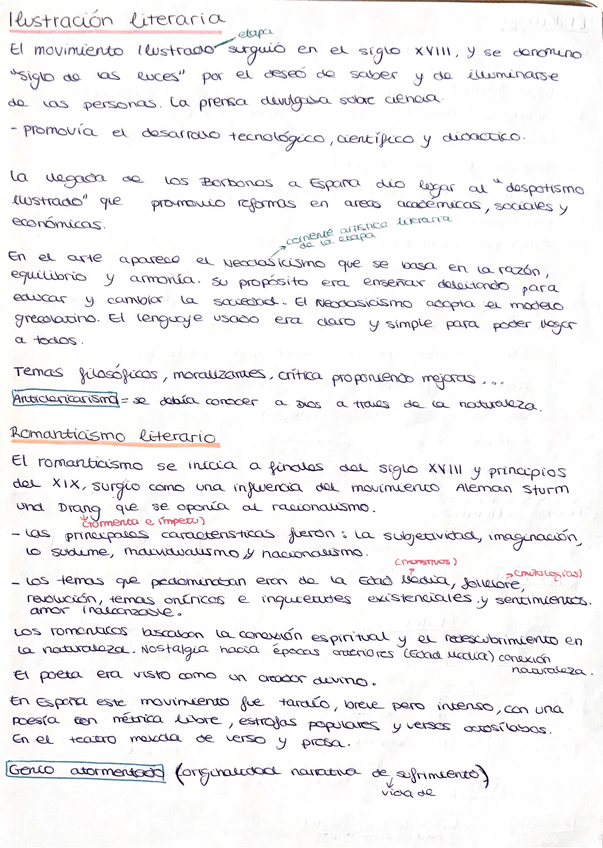 Ilustración literaria
etapa
El movimiento Ilustrado surguió en el siglo XVIII, y se denomino
"siglo de las luces" por el deseó de saber y de iluminarse
de las personas. La prensa divulgaba sobre ciencia.
- promovía el desarrollo tecnológico, científico y didactico.
La llegada de los Borbones a España dio lugar al "despotismo
ilustrado" que promovio reformas en areas académicas, sociales y
económicas.
corriente artística literaria
de la etapa
En el arte aparece el Neoclasicismo que se basa en la razón,
equilibrio y armonía. Su propósito era enseñar deleitando para
educar y cambiar la sociedad. El Neoclasicismo adapta el modelo
grecolatino. El lenguaje usado era claro y simple para poder llegar
a todos.
Temas filosóficos, moralizantes, crítica proponiendo mejoras...
Anticlericarismo = se debía conocer a Dios a traves de la naturaleza.
Romanticismo literario
El romanticismo se inicia a finales del siglo XVIII y principios
del XIX, surgio como una influencia del movimiento Aleman Sturm
und Drang que se oponía al racionalismo.
(tormenta e ímpetu)
- Las principales caracteristicas fueron: la subjetividad, imaginación,
lo sublime, individualismo y nacionalismo.
(monstruos)
(mitologías)
- Los temas que predominaban eran de la Edad Media, folclore,
revolución, temas oníricos e inquietudes existenciales y sentimientos.
amor inalcanzable.
Los románticos buscaban la conexión espiritual y el redescubrimiento en
la naturaleza. Nostalgia hacia épocas anteriores (Edad Media) conexión
naturaleza.
El poeta era visto como un creador divino.
En España este movimiento fue tardío, breve pero intenso, con una
poesía con métrica libre, estrofas populares y versos octosílabos.
En el teatro mezcla de verso y prosa.
Genio atormentado (originalidad narrativa de sufrimiento)
vida de